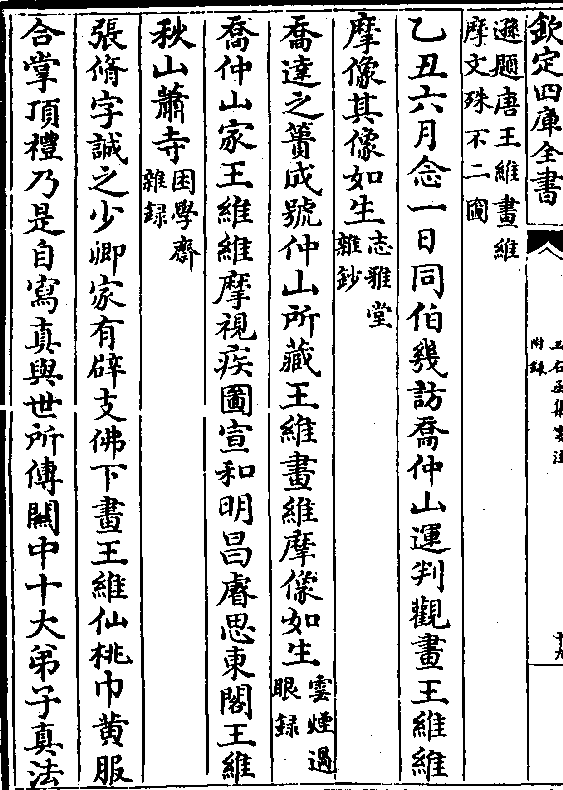 欽定四庫全書
附錄
遜題唐王維畫維
摩文殊不二圖
乙丑六月念一日同伯幾訪喬仲山運判觀畫王維維
摩像其像如生志雅堂雜鈔
喬達之簣成號仲山所藏王維畫維摩像如生雲煙過眼録
喬仲山家王維維摩視疾圖宣和明昌睿思東閣王維
秋山蕭寺困學齋雜録
張脩字誠之少卿家有辟支佛下畫王維仙桃巾黄服
合掌頂禮乃是自寫真與世所傳關中十大弟子真法